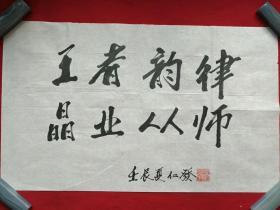 王者韵律
晶业从师
壬辰夏仁发